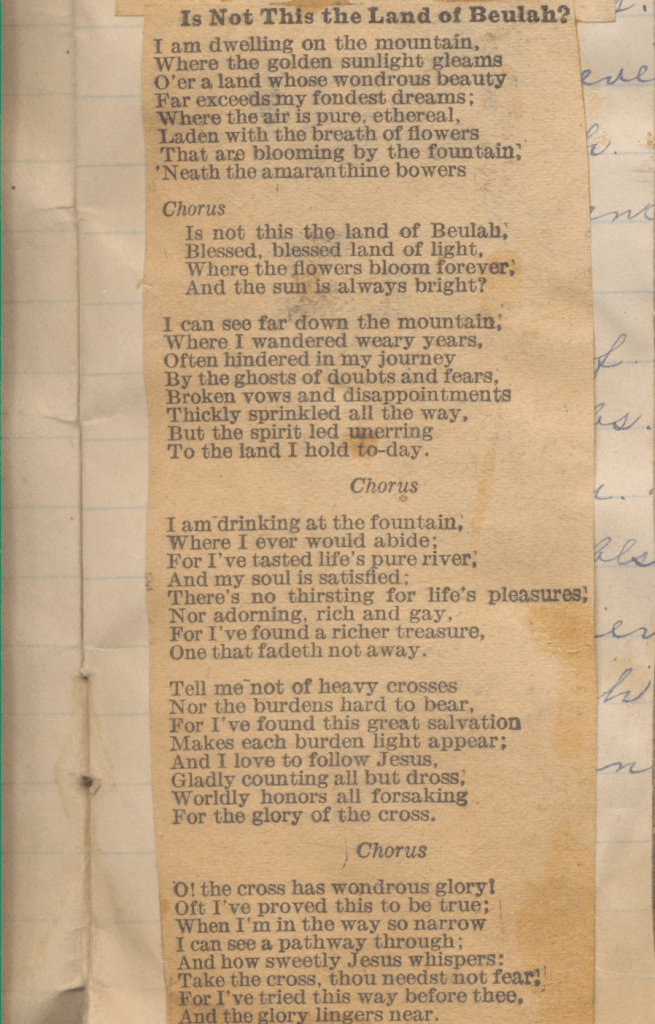 Is Not This the Land of Beulah?
I am dwelling on the mountain,
Where the golden sunlight gleams
O'er a land whose wondrous beauty
Far exceeds my fondest dreams;
Where the air is pure, ethereal,
Laden with the breath of flowers
That are blooming by the fountain,
'Neath the amaranthine bowers
Chorus
Is not this the land of Beulah,
Blessed, blessed land of light,
Where the flowers bloom forever,
And the sun is always bright?
I can see far down the mountain,
Where I wandered weary years,
Often hindered in my journey
By the ghosts of doubts and fears,
Broken vows and disappointments
Thickly sprinkled all the way,
But the spirit led unerring
To the land I hold to-day.
Chorus
I am drinking at the fountain,
Where I ever would abide;
For I've tasted life's pure river,
And my soul is satisfied;
There's no thirsting for life's pleasures,
Nor adorning, rich and gay,
For I've found a richer treasure,
One that fadeth not away.
Tell me not of heavy crosses
Nor the burdens hard to bear,
For I've found this great salvation
Makes each burden light appear;
And I love to follow Jesus,
Gladly counting all but dross,
Worldly honors all forsaking
For the glory of the cross.
Chorus
O! the cross has wondrous glory!
Oft I've proved this to be true;
When I'm in the way so narrow
I can see a pathway through;
And how sweetly Jesus whispers:
Take the cross, thou needst not fear,
For I've tried this way before thee,
And the glory lingers near.